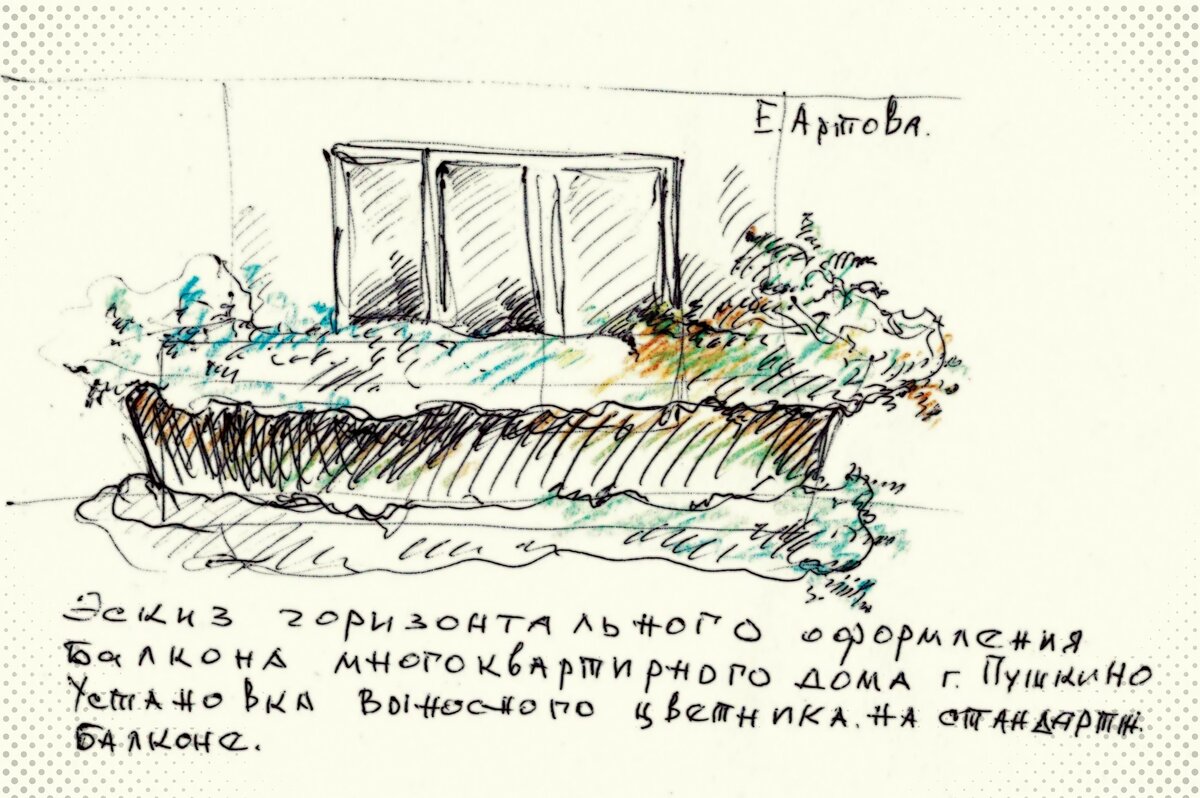 Е. Артова.
Эскиз горизонтального оформления
Балкона многоквартирного дома г. Пушкино
Установка выносного цветника. на стандартн.
балконе.